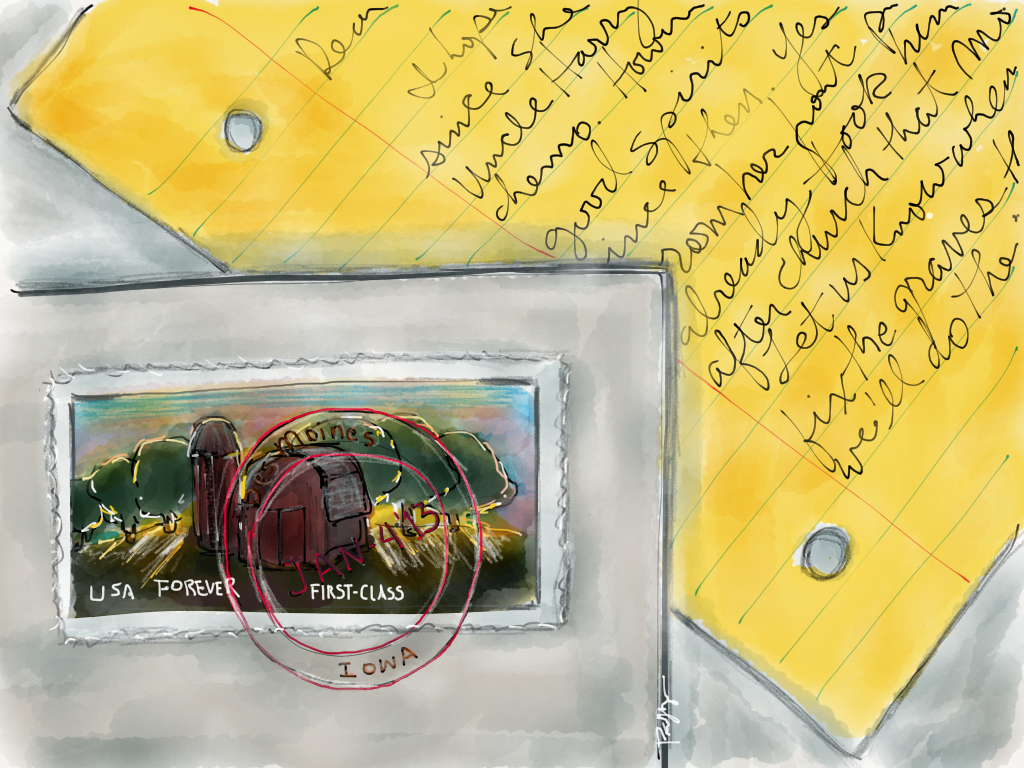 Dear
I hope
since she
Uncle Harry
chemo.
good spirits
since then. Yes
room, her front
already took him
after church that Mo
Let us know when
fix the graves. th
we'll do the
Des Moines
JAN 4
USA FOREVER FIRST-CLASS
IOWA